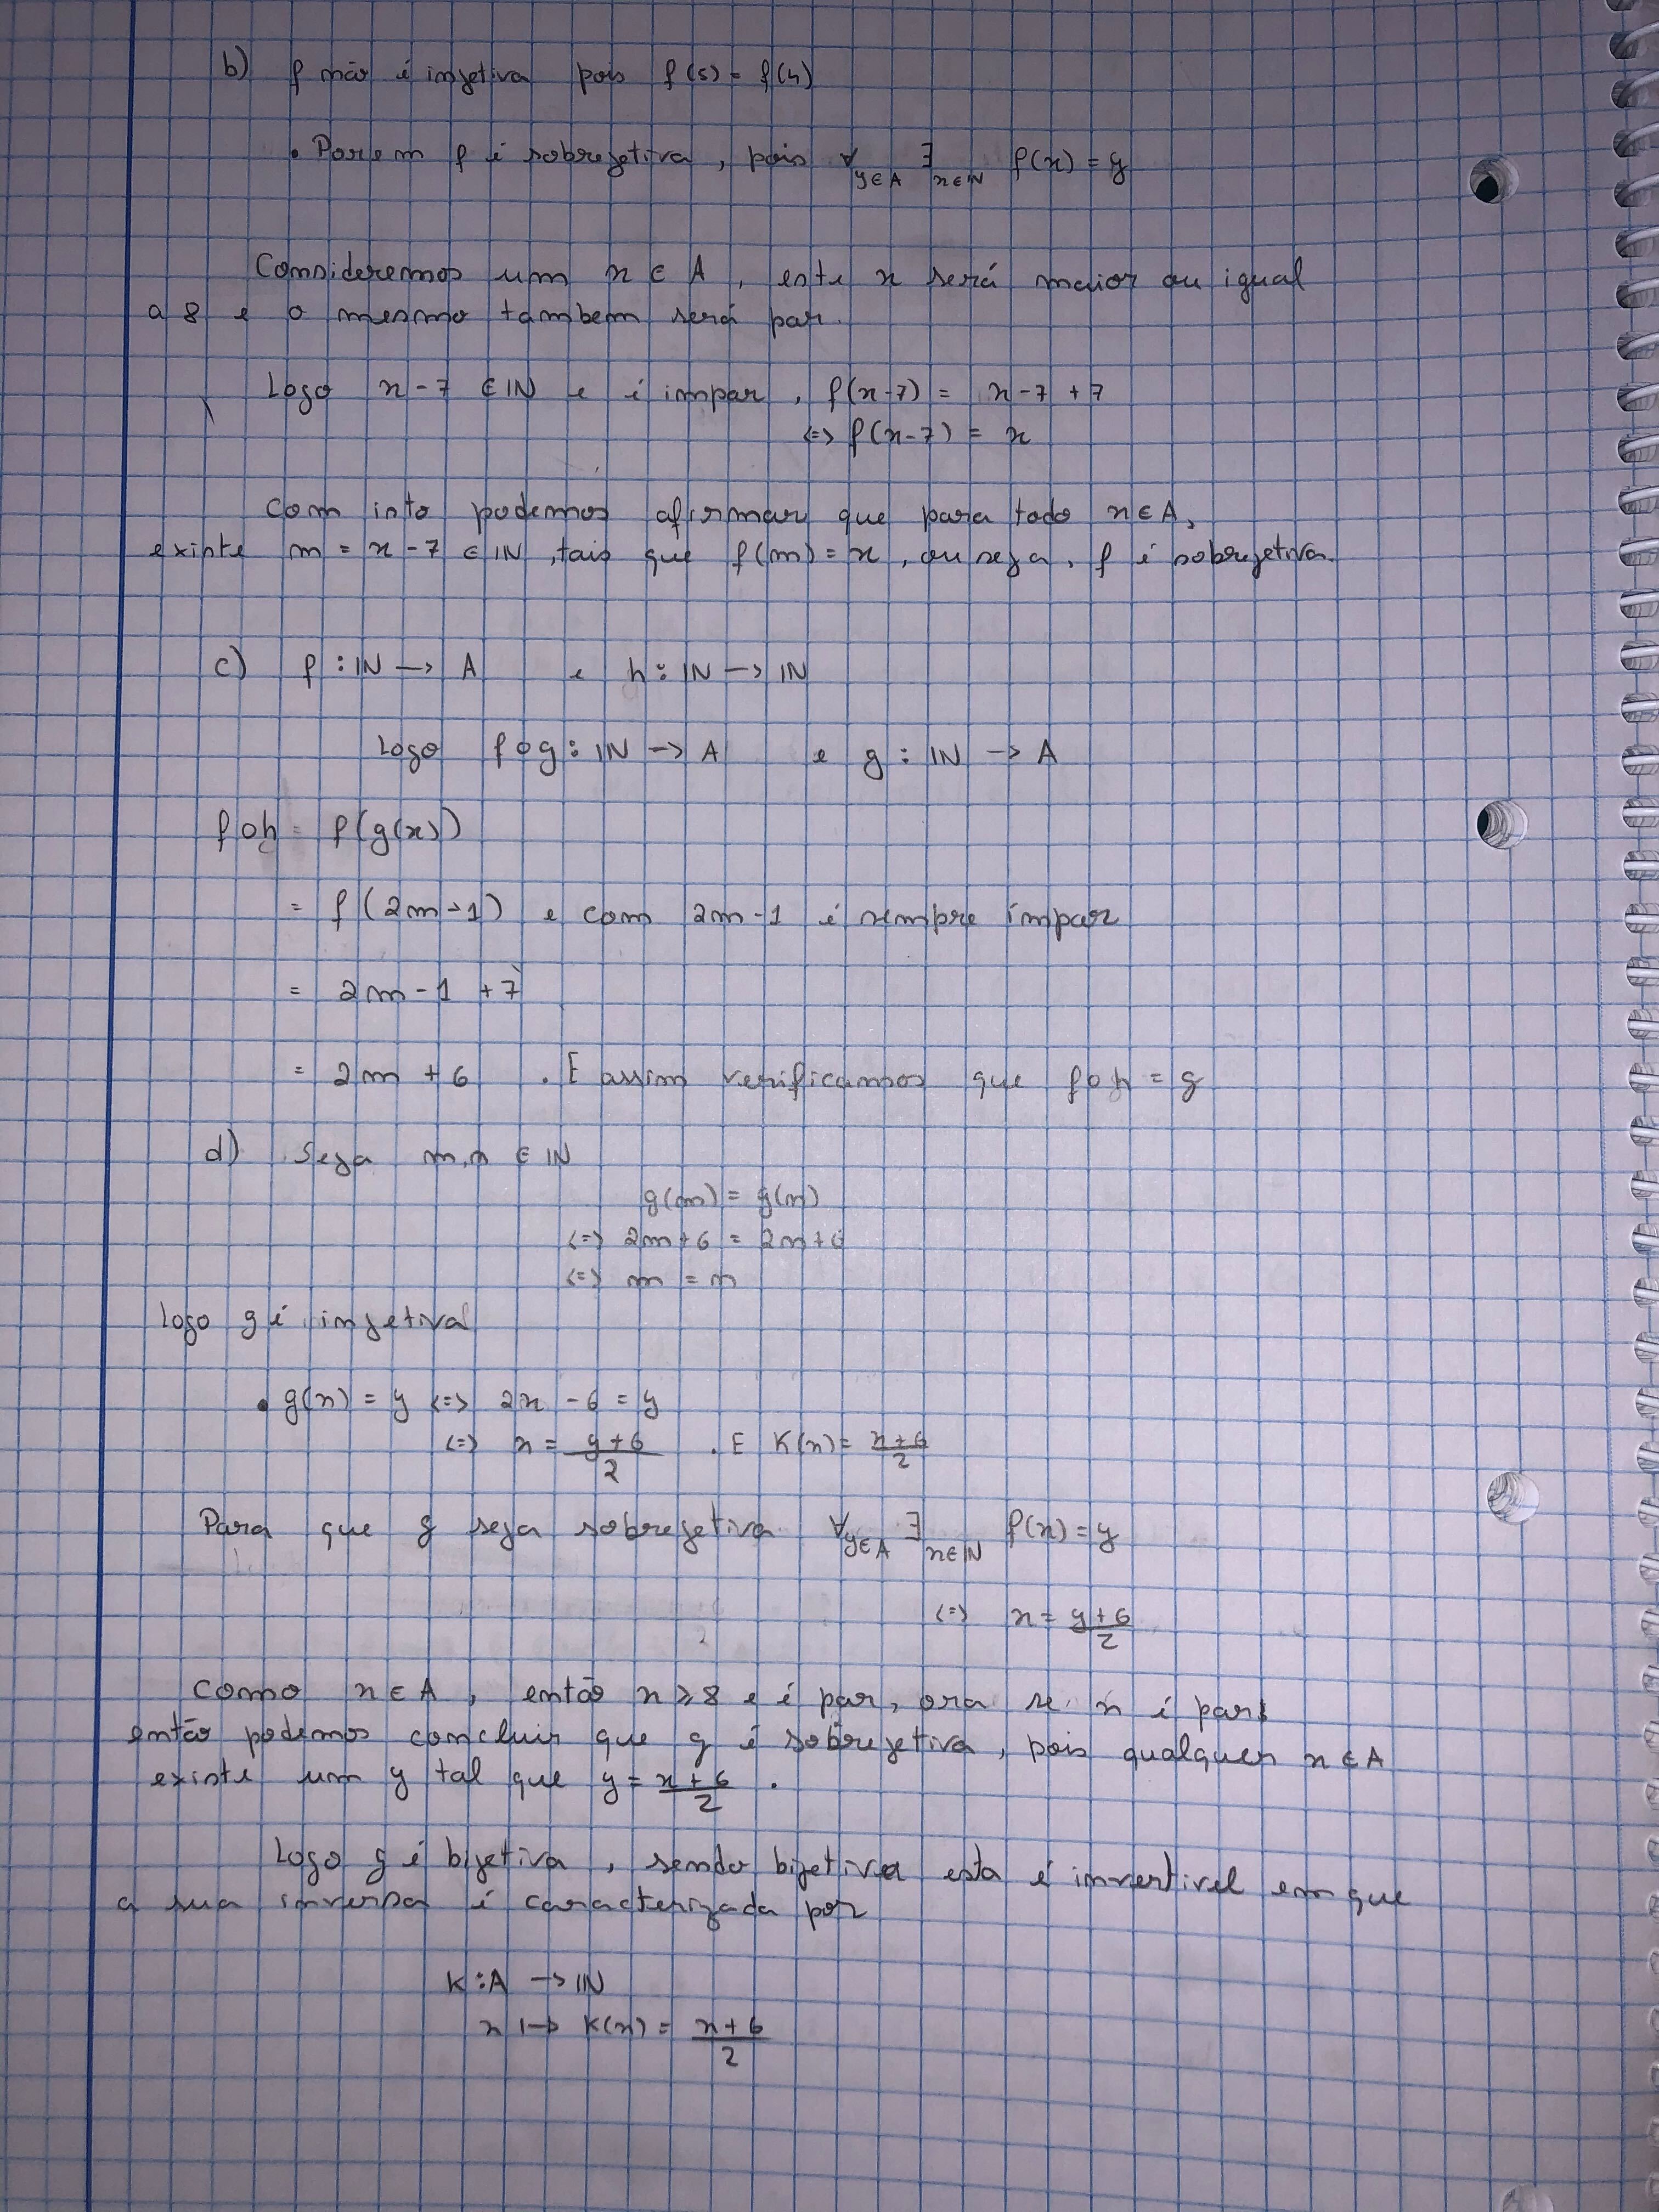 b) f não é injetiva pois f(5) = f(4)
• Porem f é sobrejetiva, pois ∀ y∈A ∃ x∈IN f(x) = y
Consideremos um x ∈ A, este x será maior ou igual
a 8 e o mesmo tambem será par.
Logo x - 7 ∈ IN e é impar, f(x-7) = x - 7 + 7
<=> f(x-7) = x
Com isto podemos afirmar que para todo x ∈ A,
existe m = x - 7 ∈ IN, tais que f(m) = x, ou seja, f é sobrejetiva.
c) f : IN -> A e h : IN -> IN
Logo f o g : IN -> A e g : IN -> A
f o h = f(g(x))
= f(2m-1) e com 2m-1 é sempre ímpar
= 2m - 1 + 7
= 2m + 6 . E assim verificamos que f o h = g
d) Seja m, n ∈ IN
g(m) = g(n)
<=> 2m + 6 = 2n + 6
<=> m = n
Logo g é injetiva
• g(x) = y <=> 2x - 6 = y
<=> x = (y + 6)/2 . E K(x) = (x + 6)/2
Para que g seja sobrejetiva ∀ y∈A ∃ x∈IN f(x) = y
<=> x = (y + 6)/2
Como x ∈ A, então x ≥ 8 e é par, ora se x é par,
então podemos concluir que g é sobrejetiva, pois qualquer x ∈ A
existe um y tal que y = (x + 6)/2 .
Logo g é bijetiva, sendo bijetiva esta é invertivel em que
a sua inversa é caracterizada por
K : A -> IN
x |-> K(x) = (x + 6)/2